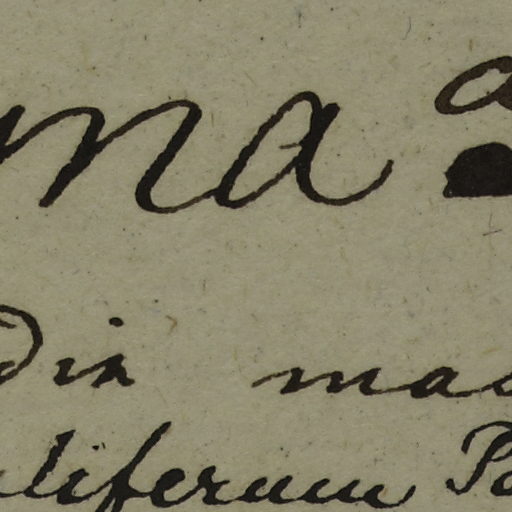 ma
dix mas
liferum Pa